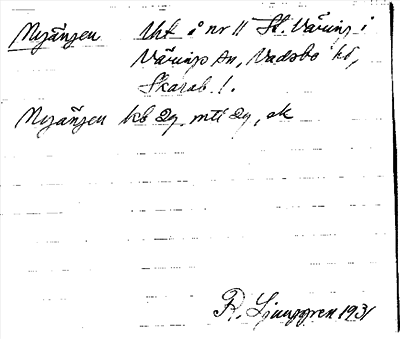 Nyängen Uht å nr 11 St. Väring i
Värings sn, Vadsbo hd,
Skarab. l.
Nyängen kb 2g. mtl 2g, ek
R. Ljunggren 1931